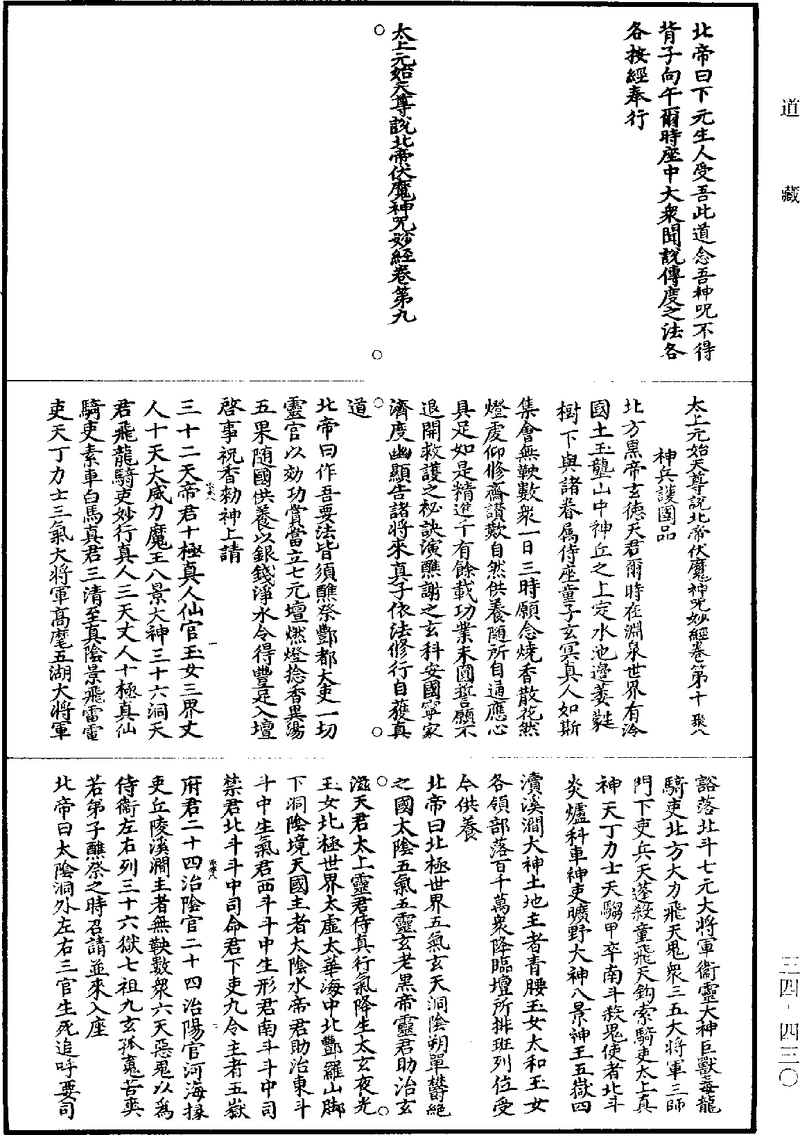 道藏
北帝曰下元生人受吾此道念吾神咒不得
背子向午爾時座中大衆聞說傳度之法各
各按經奉行
太上元始天尊說北帝伏魔神咒妙經卷第九
太上元始天尊說北帝伏魔神咒妙經卷第十 聚八
神兵護國品
北方黑帝玄德天君爾時在淵泉世界有泠
國土玉壟山中神丘之上定水池邊菱蕤
樹下與諸眷屬侍座童子玄冥真人如斯
集會無鞅數衆一日三時願念燒香散花然
燈虔仰修齋讚歎自然供養隨所自通應心
具足如是精進千有餘載功業未圓誓願不
退開救護之秘訣演醮謝之玄科安國寧家
濟度幽顯告諸將來真子依法修行自獲真
道
北帝曰作吾要法皆須醮祭酆都大吏一切
靈官以効功賞當立七元壇燃燈捻香異湯
五果隨國供養以銀錢淨水令得豐足入壇
啓事祝香勑神上請
三十二天帝君十極真人仙官玉女三界丈
人十天大威力魔王八景大神三十六洞天
君飛龍騎吏妙行真人三天丈人十極真仙
騎吏素車白馬真君三清至真陰景飛雷電
吏天丁力士三氣大將軍高麾五湖大將軍
豁落北斗七元大將軍衙靈大神巨獸毒龍
騎吏北方大力飛天鬼衆三五大將軍三師
門下吏兵天蓬綬童飛天鉤索騎吏太上真
神天丁力士天騶甲卒南斗救鬼使者北斗
炎爐科車神吏曠野大神八景神王五嶽四
瀆溪澗大神土地主者青腰玉女太和玉女
各領部落百千萬衆降臨壇所排班列位受
今供養
北帝曰北極世界五氣玄天洞陰朔單鬱絕
之國太陰五氣五靈玄老黑帝靈君助治玄
滋天君太上靈君侍真行氣降生太玄夜光
玉女北極世界太虛太華海中北酆羅山脚
下洞陰境天國主者太陰水帝君助治東斗
斗中生氣君西斗斗中生形君南斗斗中司
禁君北斗斗中司命君下吏九令主者五嶽
府君二十四治陰官二十四治陽官河海掾
吏丘陵溪澗主者無鞅數衆六天惡鬼以爲
侍衛左右列三十六獄七祖九玄孤䰟苦爽
若弟子醮祭之時召請並來入座
北帝曰太陰洞外左右三官生死追呼要司
三四-四三〇